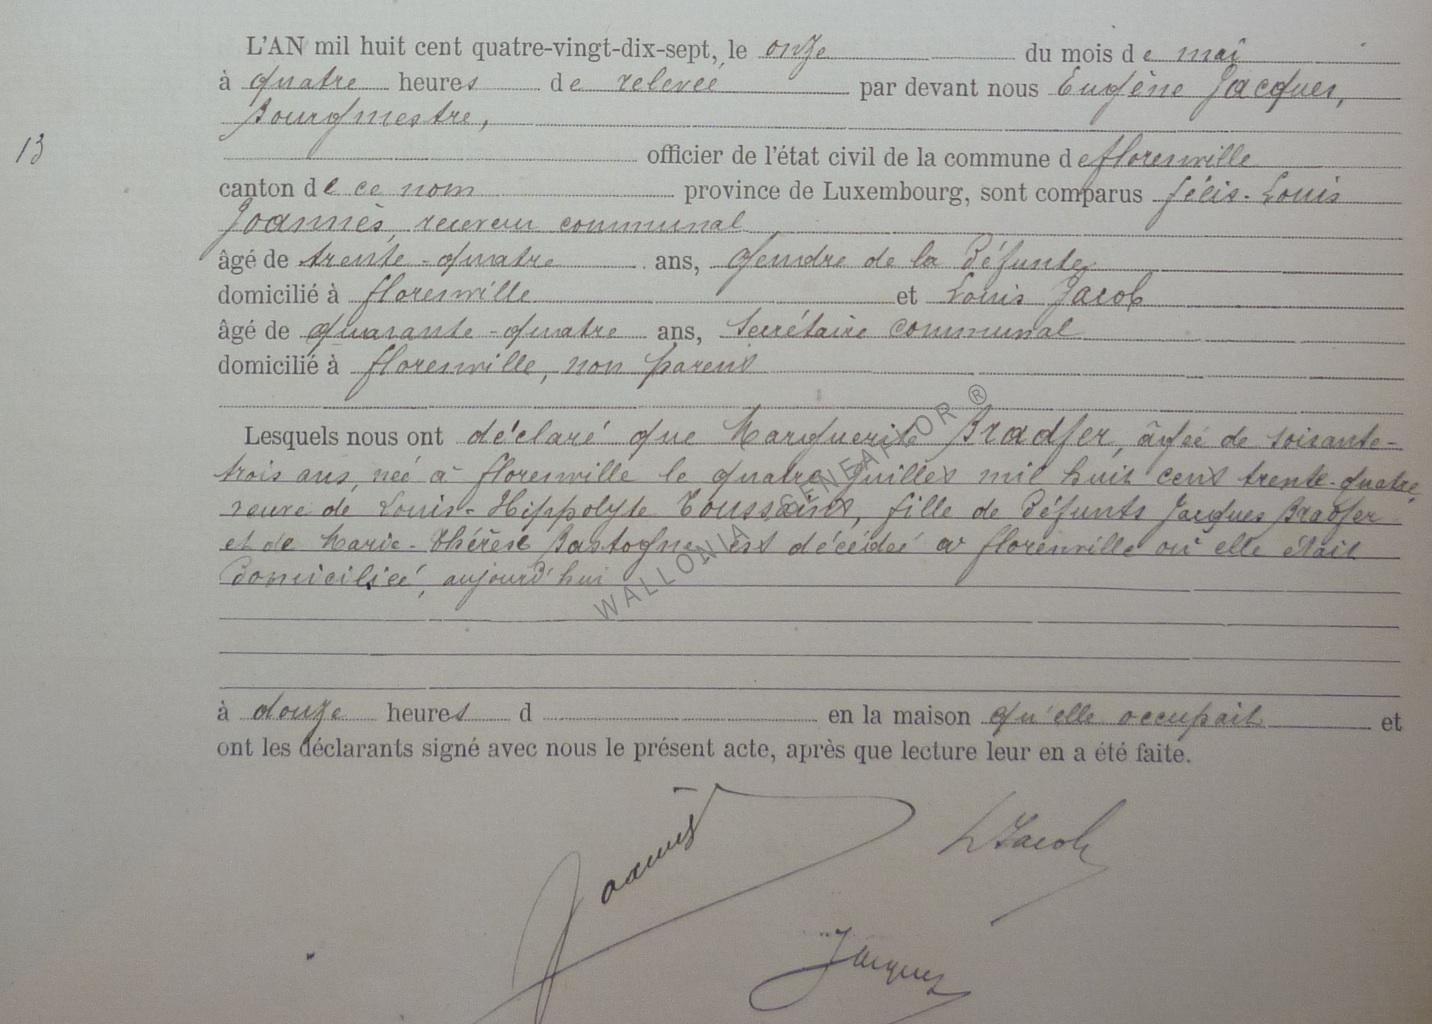 L'AN mil huit cent quatre-vingt-dix-sept, le onze du mois de mai
à quatre heures de relevée par devant nous Eugène Jacques,
Bourgmestre,
13
officier de l'état civil de la commune de florenville
canton de ce nom province de Luxembourg, sont comparus félix-Louis
Joannès, receveur communal
âgé de trente-quatre ans, gendre de la défunte,
domicilié à florenville et Louis Jacob
âgé de quarante-quatre ans, secrétaire communal
domicilié à florenville, non parent
Lesquels nous ont déclaré que Marguerite Bradfer, âgée de soixante-
trois ans, née à florenville le quatre juillet mil huit cent trente-quatre,
veuve de Louis-Hippolyte Toussaint, fille de défunts Jacques Bradfer
et de Marie-Thérèse Bastogne est décédée à florenville où elle était
domiciliée, aujourd'hui
WALLONIA GENEAFLOR ®
à douze heures d en la maison qu'elle occupait et
ont les déclarants signé avec nous le présent acte, après que lecture leur en a été faite.
Joannès L Jacob
Jacques